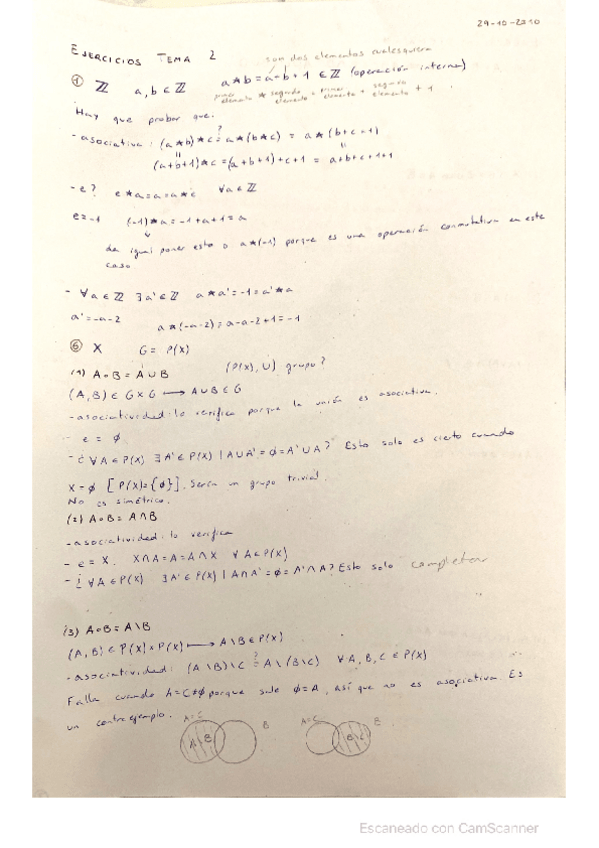 29-10-2010
EJERCICIOS TEMA 2
son dos elementos cualesquiera
① ℤ a, b ∈ ℤ a ★ b = a + b + 1 ∈ ℤ (operación interna)
primer elemento ★ segundo elemento = primer elemento + segundo elemento + 1
Hay que probar que:
- asociativa: (a★b)★c ?= a★(b★c) = a★(b+c+1)
(a+b+1)★c = (a+b+1)+c+1 = a+b+c+1+1
- e? e★a=a=a★e ∀a∈ℤ
e=-1 (-1)★a=-1+a+1=a
da igual poner esto o a★(-1) porque es una operación conmutativa en este
caso
- ∀a∈ℤ ∃a'∈ℤ a★a'=-1=a'★a
a'=-a-2 a★(-a-2)=a-a-2+1=-1
⑥ X G=P(X)
(1) A∘B=A∪B (P(X),∪) grupo?
(A,B)∈G×G ⟼ A∪B∈G
- asociatividad: lo verifica porque la unión es asociativa.
- e=∅
- ¿∀A∈P(X) ∃A'∈P(X) | A∪A'=∅=A'∪A? Esto solo es cierto cuando
X=∅ [P(X)={∅}]. Sería un grupo trivial.
No es simétrico.
(2) A∘B=A∩B
- asociatividad: lo verifica
- e=X. X∩A=A=A∩X ∀A∈P(X)
- ¿∀A∈P(X) ∃A'∈P(X) | A∩A'=∅=A'∩A? Esto solo completar
(3) A∘B=A\B
(A,B)∈P(X)×P(X) ⟼ A\B∈P(X)
- asociatividad: (A\B)\C ?= A\(B\C) ∀A,B,C∈P(X)
Falla cuando A=C≠∅ porque sale ∅=A, así que no es asociativa. Es
un contraejemplo.
A=C B A=C B
A\B B\C
Escaneado con CamScanner